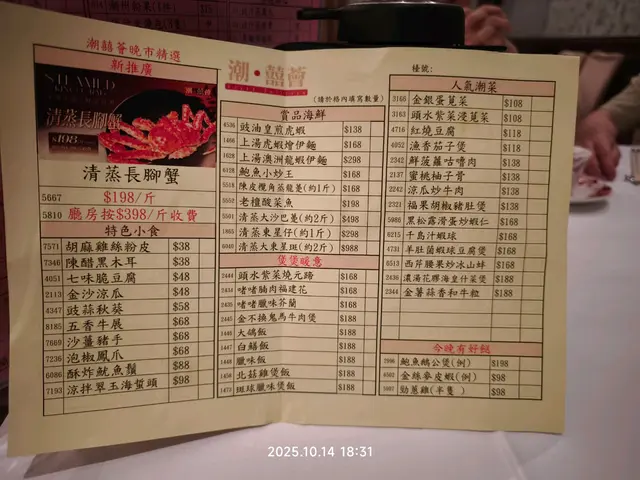 潮囍薈晚市精選
新推廣
STEAMED
清蒸長腳蟹
$198/斤
清蒸長腳蟹
5667 $198/斤
5810 廳房按$398/斤收費
特色小食
7571 胡麻雞絲粉皮 $38
7346 陳醋黑木耳 $38
4051 七味脆豆腐 $48
2113 金沙涼瓜 $48
4347 豉蒜秋葵 $58
8185 五香牛展 $68
7669 沙薑豬手 $68
7236 泡椒鳳爪 $68
6086 酥炸魷魚鬚 $88
7193 涼拌翠玉海蜇頭 $98
潮·囍薈
(請於格內填寫數量)
賞品海鮮
4536 豉油皇煎虎蝦 $138
1466 上湯虎蝦燴伊麵 $168
1628 上湯澳洲龍蝦伊麵 $298
6128 鮑魚小炒王 $168
5518 陳皮欖角蒸龍躉(約1斤) $168
5552 老檀酸菜魚 $198
5501 清蒸大沙巴躉(約2斤) $498
1865 清蒸東星仔(約1斤) $298
6040 清蒸大東星斑(約2斤) $988
煲煲暖意
2444 頭水紫菜燒元蹄 $168
2434 啫啫腩肉福建花 $168
2435 啫啫臘味芥蘭 $168
2445 金不換鬼馬牛肉煲 $188
1446 火鴿飯 $188
1447 白鱔飯 $188
1448 臘味飯 $188
1456 北菇雞煲飯 $188
1473 斑球臘味煲飯 $188
檯號:
人氣潮菜
3166 金銀蛋莧菜 $108
3163 頭水紫菜浸莧菜 $108
4716 紅燒豆腐 $118
4052 漁香茄子煲 $118
2342 鮮菠蘿咕嚕肉 $138
2137 蜜桃柚子骨 $138
2242 涼瓜炒牛肉 $138
2321 福果胡椒豬肚煲 $168
5985 黑松露滑蛋炒蝦仁 $168
6215 千島汁蝦球 $168
4731 羊肚菌蝦球豆腐煲 $168
6513 西芹腰果炒冰山蚌 $168
2436 濃湯花膠海皇什菜煲 $188
2344 金薯蒜香和牛粒 $188
今晚有好餸
7986 鮑魚鵝公煲(例) $198
4502 金絲麥皮蝦(例) $98
5007 勁蔥雞(半隻) $98
2025.10.14 18:31